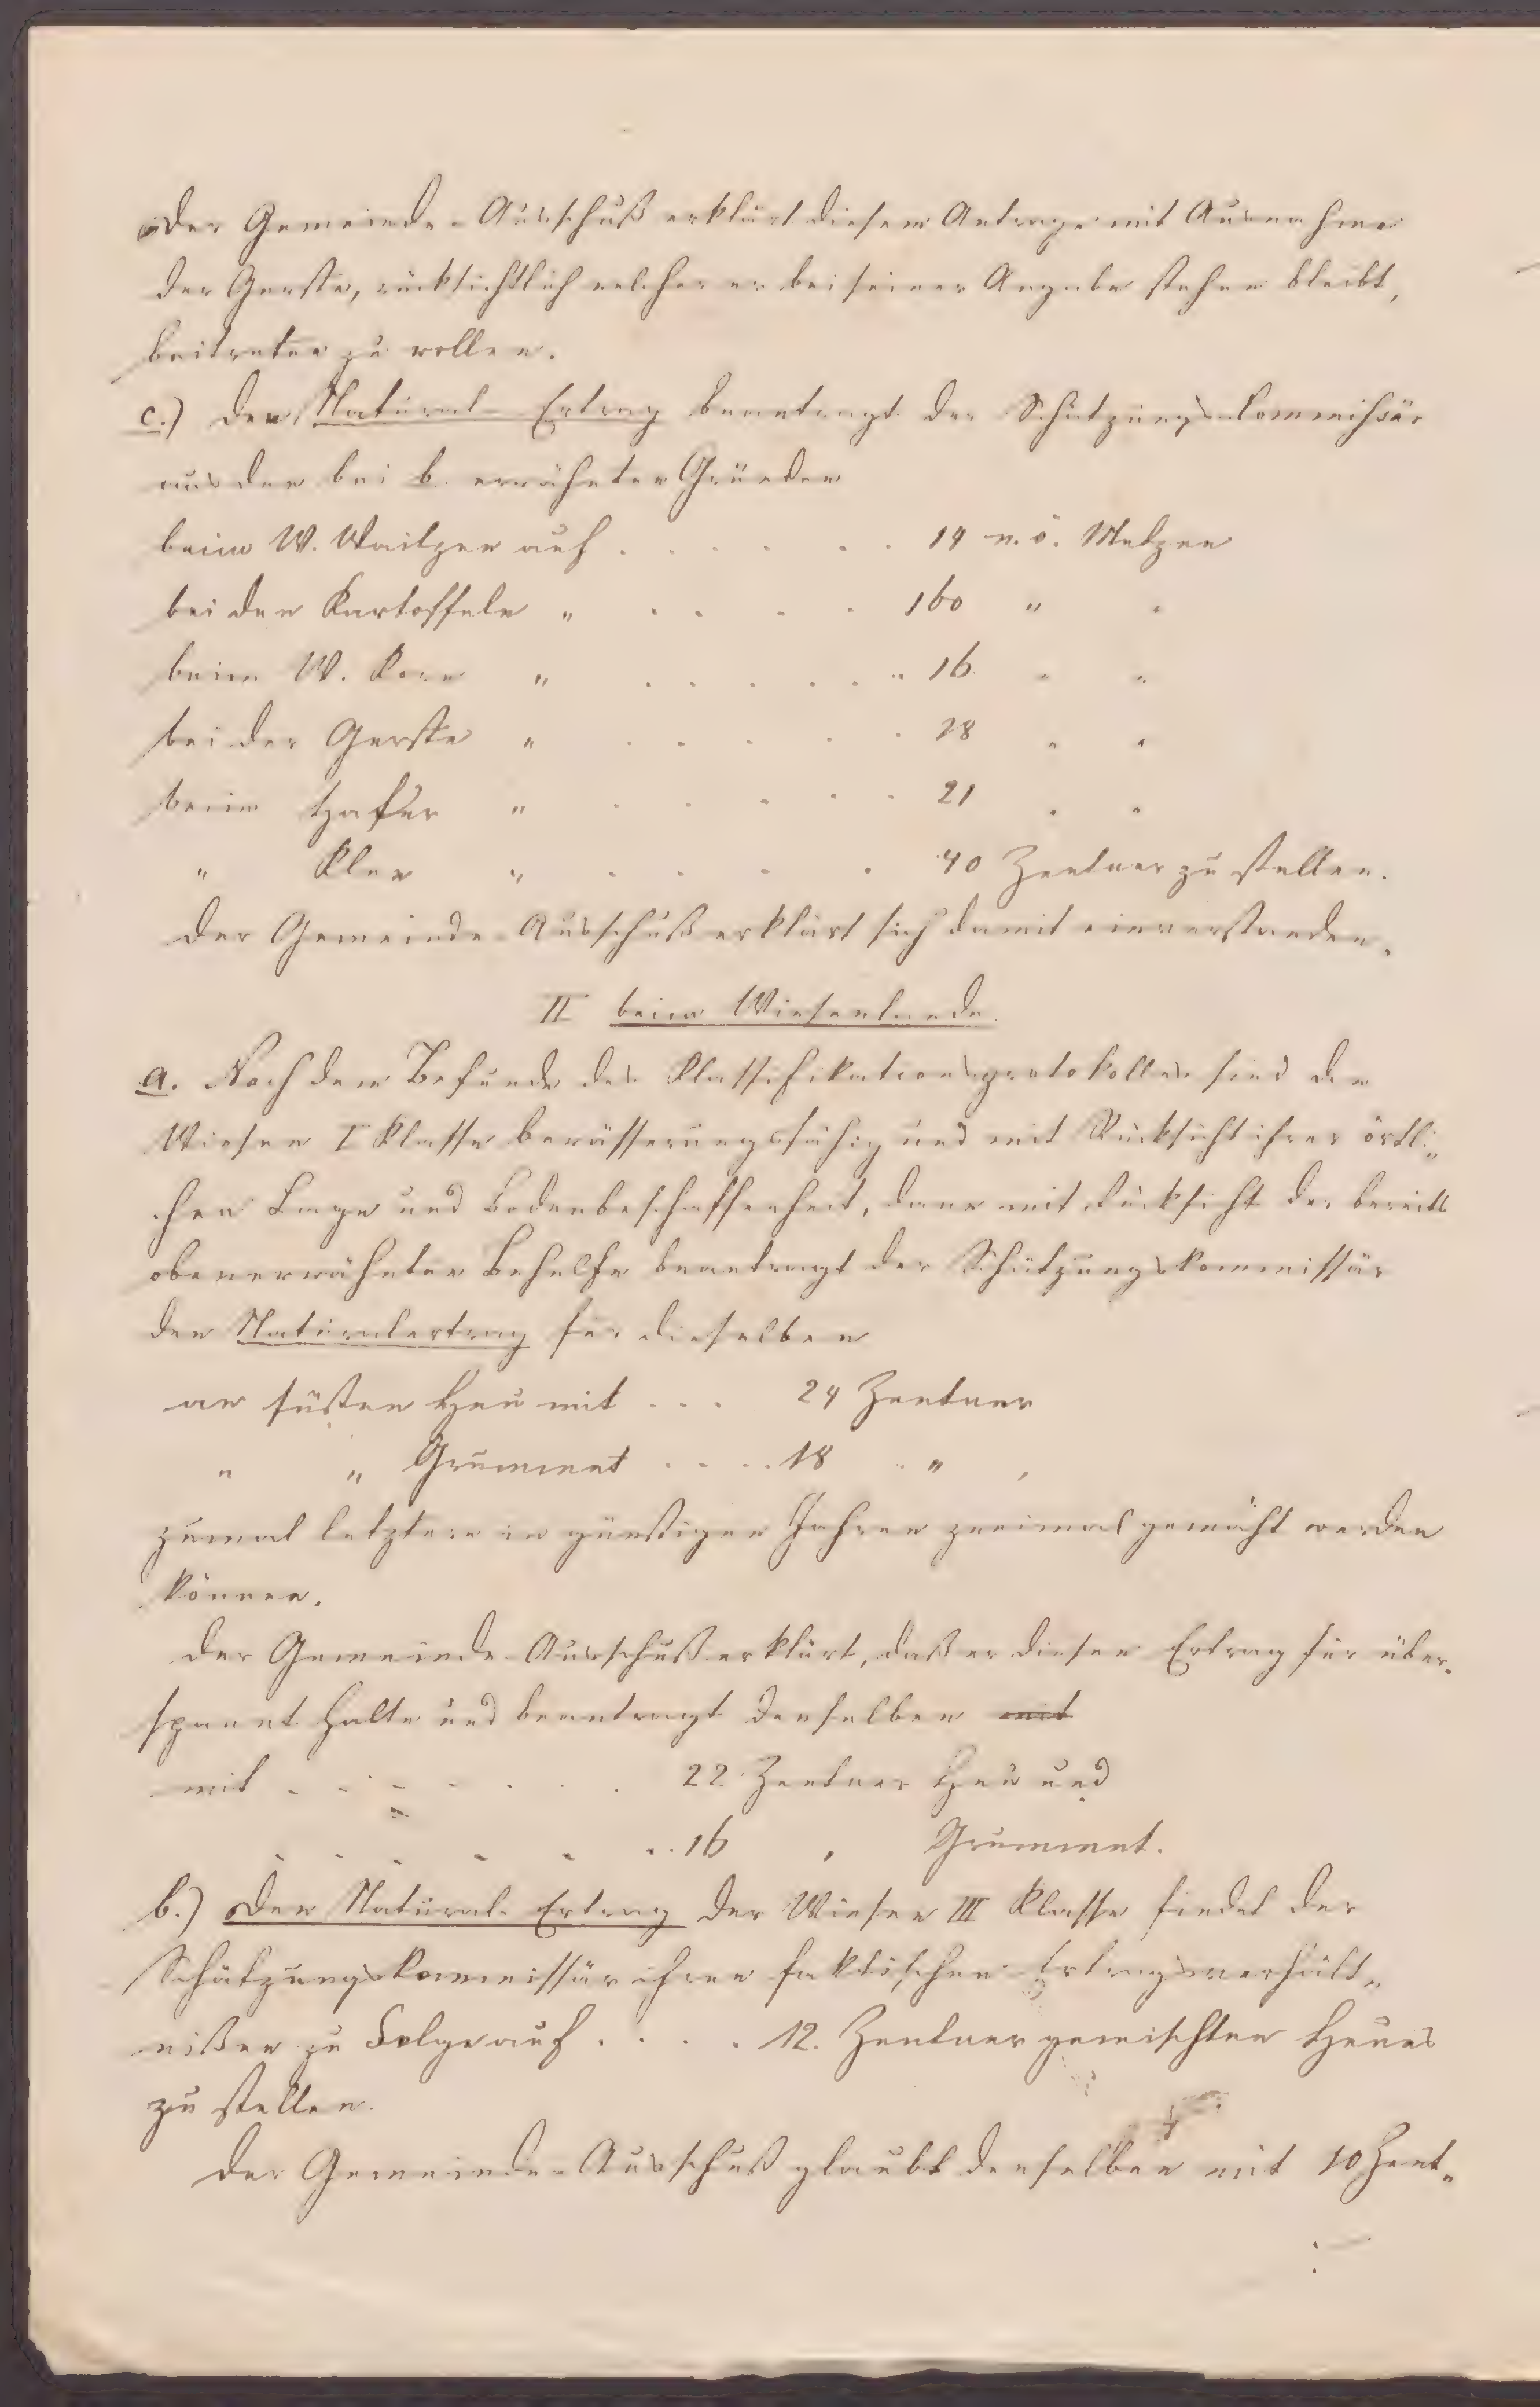 Der Gemeinde-Ausschuß erklärt diesem Antrage mit Ausnahme
der Gerste, rücksichtlich welcher er bei seiner Angabe stehen bleibt,
beitreten zu wollen.
c.) Den Natural-Ertrag beantragt der Schätzungs-Commissär
aus den bei b. erwähnten Gründen
beim W. Waitzen auf . . . . . . 14 n. ö. Metzen
bei den Kartoffeln " . . . . 160 " "
beim W. Korn " . . . . . . . 16 " "
bei der Gerste " . . . . . 28 " "
beim Hafer " . . . . . 21 " "
" Klee " . . . . 40 Zentner zu stellen.
Der Gemeinde-Ausschuß erklärt sich damit einverstanden.
II beim Wiesenlande
a. Nach dem Befunde des Klassifikationsprotokolles sind die
Wiesen I Klasse bewässerungsfähig und mit Rücksicht ihrer örtli„
chen Lage und Bodenbeschaffenheit, dann mit Rücksicht der bereits
obenerwähnten Behelfe beantragt der Schätzungskommissär
den Naturalertrag für dieselben
an süßen Heu mit . . . 24 Zentner
" " Grummet . . . . 18 " ,
zumal letztere in günstigen Jahren zweimal gemäht werden
können.
Der Gemeinde-Ausschuß erklärt, daß er diesen Ertrag für über„
spannt halte und beantragt denselben mit
mit . . . . . . . 22 Zentner Heu und
. . . . . . . 16 " Grummet.
b.) Den Natural-Ertrag der Wiesen III Klasse findet der
Schätzungskommissär ihren faktischen Ertragsverhält„
nißen zu Folge auf . . . . 12. Zentner gemischten Heues
zu stellen.
Der Gemeinde-Ausschuß glaubt denselben mit 10 Zent„